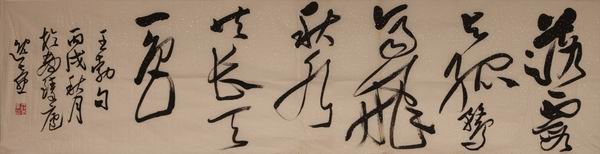 落霞
与孤鹜
齐飞
秋水
共长天
一色
王勃句
丙戌秋月